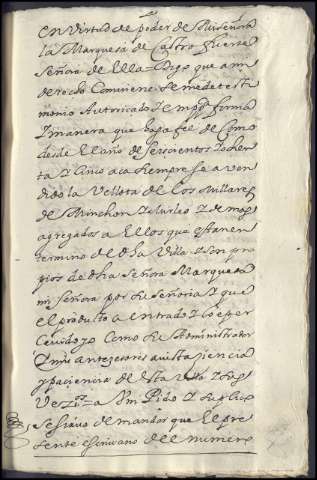 En Virtud de poder de mi señora
la Marquesa de Castro fuerte
Señora de Ella = Digo que a mi
derecho Combiene se me de testi
monio Autoricado En pp.ca forma
I manera que haga fee de Como
desde El año de seiscientos I ochen
ta I cinco aca siempre se a ven
dido la Vellota de Los millares
de Minchon I I demas
agregados a Ellos que estan en
termino de dha Villa I son pro
pios de dha Señora Marquesa
mi Señora por su Señoria I que
el producto a entrado I lo e per
cevido yo Como su Administrador
I mis antezesores a vista ziencia
y paciencia de esta Villa I sus
Vezinos = A Vm Pido I suplico
se sirva de mandar que El pre
sente escrivano del numero